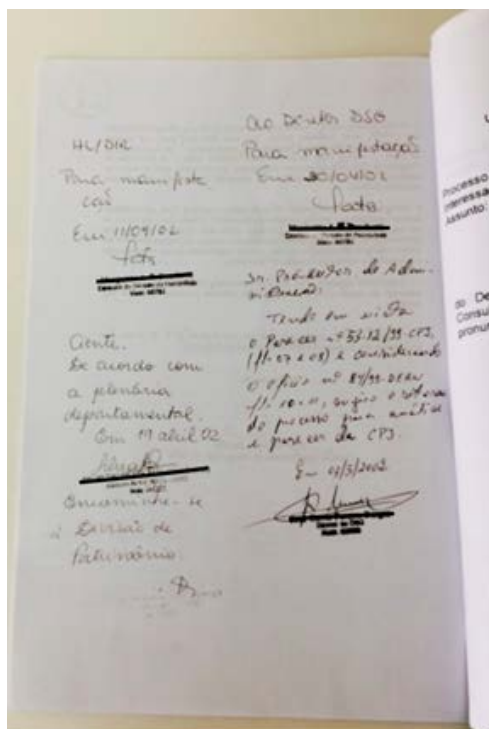 HU/DIR
Para manifesta
ção
Em 11/04/02
Ciente.
De acordo com
a plenária
departamental.
Em 19 abril 02
Encaminhe-se
à Divisão de
Patrimônio.
Ao Diretor DSG
Para manifestação
Em 30/04/02
Sr. Pró-Reitor de Admi-
nistração:
Tendo em vista
o Parecer nº 53-12/99-CPJ,
(fls. 07 e 08) e considerando
o ofício nº 87/99-
fls. 10-11, sugiro o retorno
do processo para análise
e parecer da CPJ.
Em 07/5/2002
Processo
Interessa
Assunto:
do De
Consu
pronun